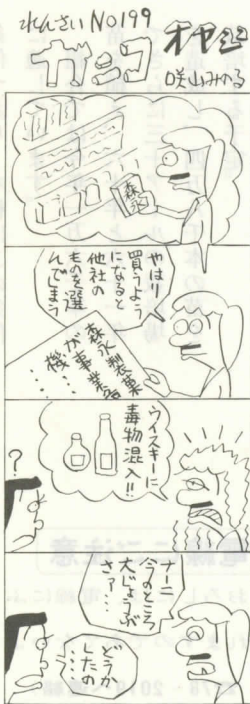 れんさいNO199
ガンコオヤジ
咲山みのる
森永
やはり
買うよう
になると
他社の
ものを選
んでしまう
森永製菓
が事業
機
‥‥
ウイスキーに
毒物混入!!
?
ナーニ
今のところ
大じょうぶ
さァー…
どうか
したの
‥‥